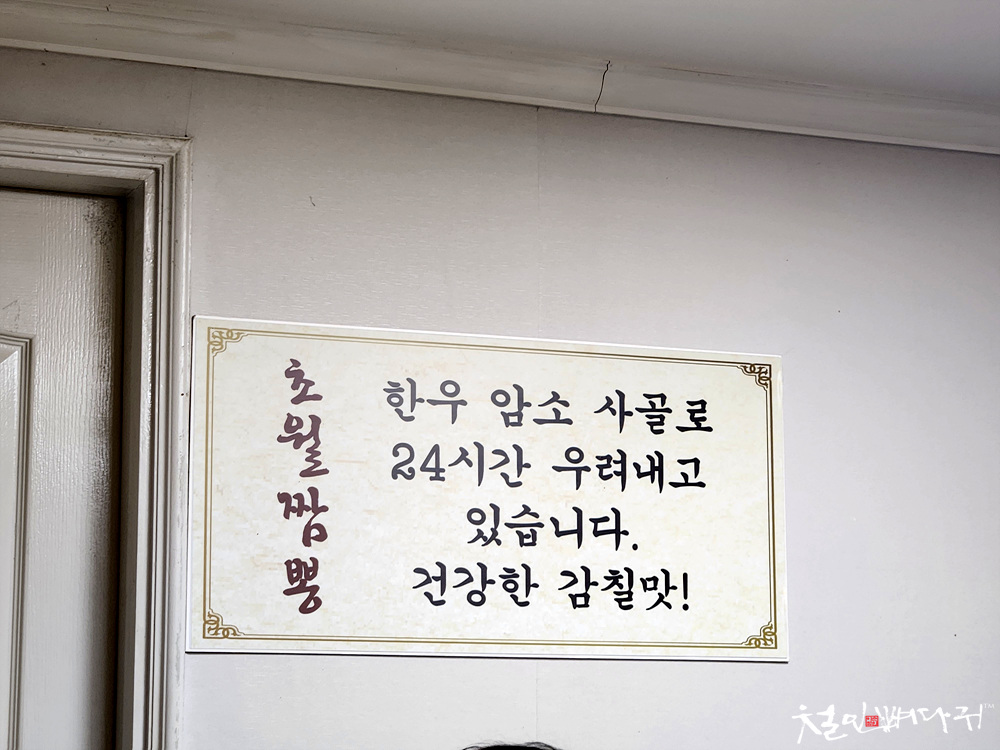 초월짬뽕
한우 암소 사골로
24시간 우려내고
있습니다.
건강한 감칠맛!
철민뼈다귀™